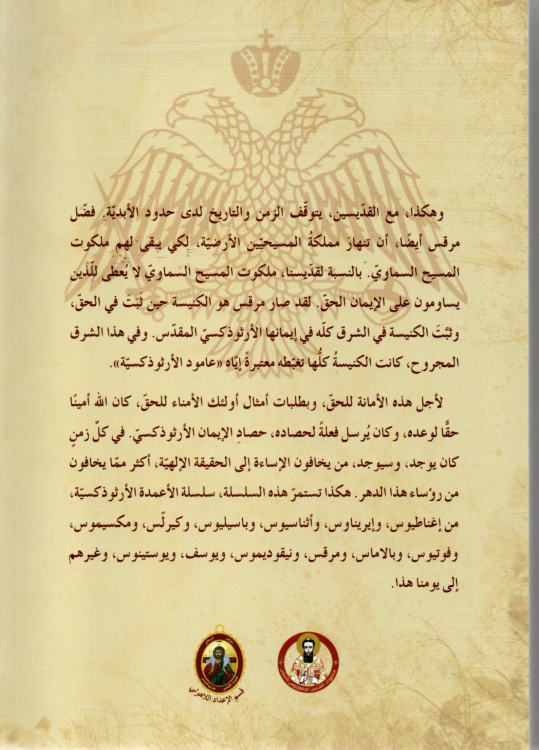 وهكذا، مع القدّيسين، يتوقّف الزمن والتاريخ لدى حدود الأبديّة. فضّل
مرقس أيضًا، أن تنهارَ مملكةُ المسيحيّين الأرضيّة، لكي يبقى لهم ملكوت
المسيح السماويّ. بالنسبة لقدّيسنا، ملكوت المسيح السماويّ لا يُعطى للّذين
يساومون على الإيمان الحقّ. لقد صار مرقس هو الكنيسة حين ثبَتَ في الحقّ،
وثبّتَ الكنيسة في الشرق كلّه في إيمانها الأرثوذكسيّ المقدّس. وفي هذا الشرق
المجروح، كانت الكنيسةُ كلُّها تغبّطه معتبرةً إيّاه «عامود الأرثوذكسيّة».
لأجل هذه الأمانة للحقّ، وبطلبات أمثال أولئك الأمناء للحقّ، كان الله أمينًا
حقًّا لوعده، وكان يُرسل فعلةً لحصاده، حصادِ الإيمان الأرثوذكسيّ. في كلّ زمنٍ
كان يوجد، وسيوجد، من يخافون الإساءة إلى الحقيقة الإلهيّة، أكثر ممّا يخافون
من رؤساء هذا الدهر. هكذا تستمرّ هذه السلسلة، سلسلة الأعمدة الأرثوذكسيّة،
من إغناطيوس، وإيريناوس، وأثناسيوس، وباسيليوس، وكيرلّس، ومكسيموس،
وفوتيوس، وبالاماس، ومرقس، ونيقوديموس، ويوسف، ويوستينوس، وغيرهم
إلى يومنا هذا.
قسم الإعداد اللاهوتي